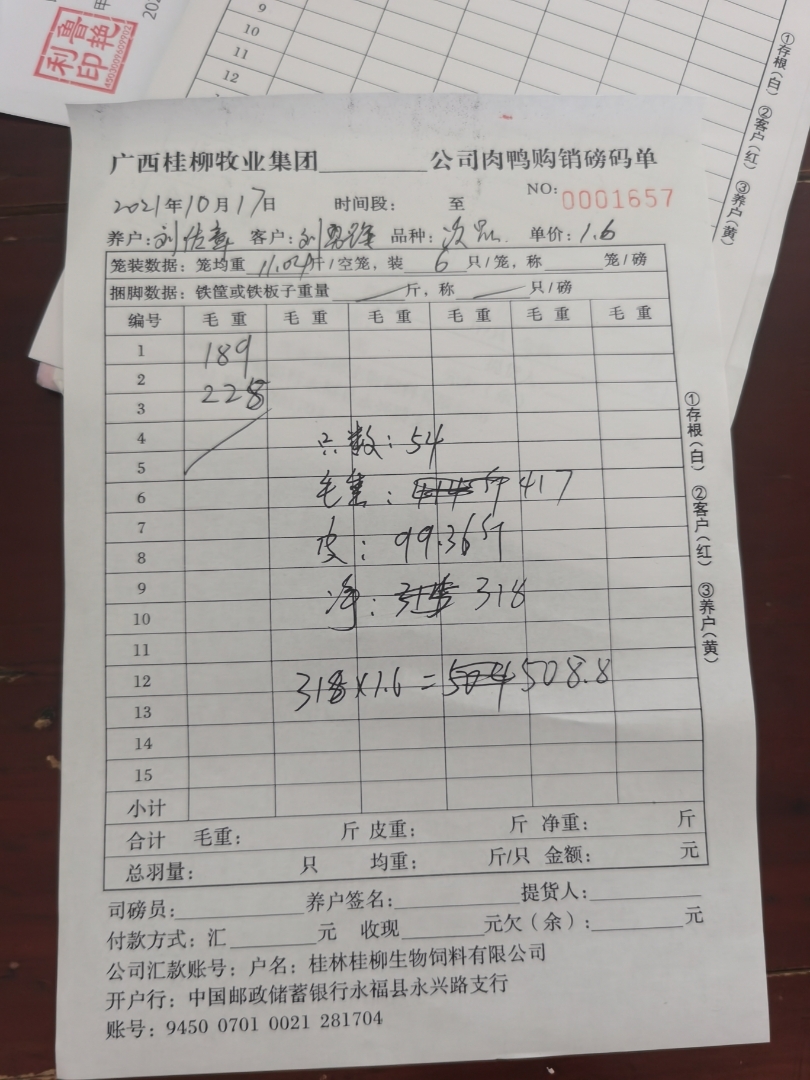 鲁艳
利印
9
10
11
12
①存根(白) ②客户(红) ③养户(黄)
广西桂柳牧业集团________公司肉鸭购销磅码单
NO: 0001657
2021年10月17日 时间段: 至
养户: 客户: 品种:次品. 单价:1.6
笼装数据: 笼均重 11.04斤/空笼, 装 6 只/笼, 称______笼/磅
捆脚数据: 铁筐或铁板子重量______斤, 称______只/磅
编号 毛重 毛重 毛重 毛重 毛重 毛重
1 189
2 228
3
4 只数: 54
5
6 毛重: 417
7
8 皮: 99.36斤
9
10 净: 318
11
12 318×1.6=508.8
13
14
15
小计
合计 毛重: 斤 皮重: 斤 净重: 斤
总羽量: 只 均重: 斤/只 金额: 元
①存根(白) ②客户(红) ③养户(黄)
司磅员:________ 养户签名:________ 提货人:________
付款方式: 汇______元 收现______元欠(余):______元
公司汇款账号: 户名: 桂林桂柳生物饲料有限公司
开户行: 中国邮政储蓄银行永福县永兴路支行
账号: 9450 0701 0021 281704